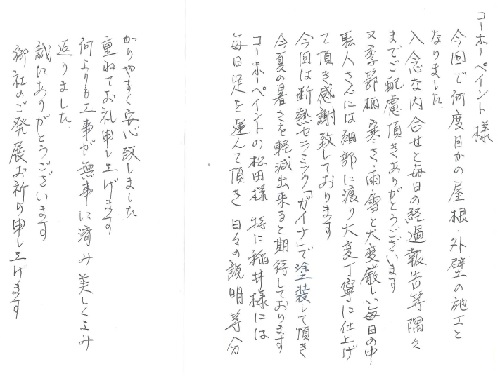 コーホーペイント様
今回で何度目かの屋根・外壁の施工と
なりました
入念な打合せと毎日の経過報告等隅々
までご配慮頂きありがとうございます
又季節柄寒さ・雨雪と大変厳しい毎日の中
職人さんには細部に渡り大変丁寧に仕上げ
て頂き感謝致しております
今回は断熱セラミック(ガイナ)で塗装して頂き
今夏の暑さを軽減出来ると期待しております
コーホーペイントの松田様 特に稲井様には
毎日足を運んで頂き日々の説明等分
かりやすく安心致しました
重ねてお礼申し上げます
何よりも工事が無事に済み美しく
返りました
誠にありがとうございます
御社のご発展お祈り申し上げます